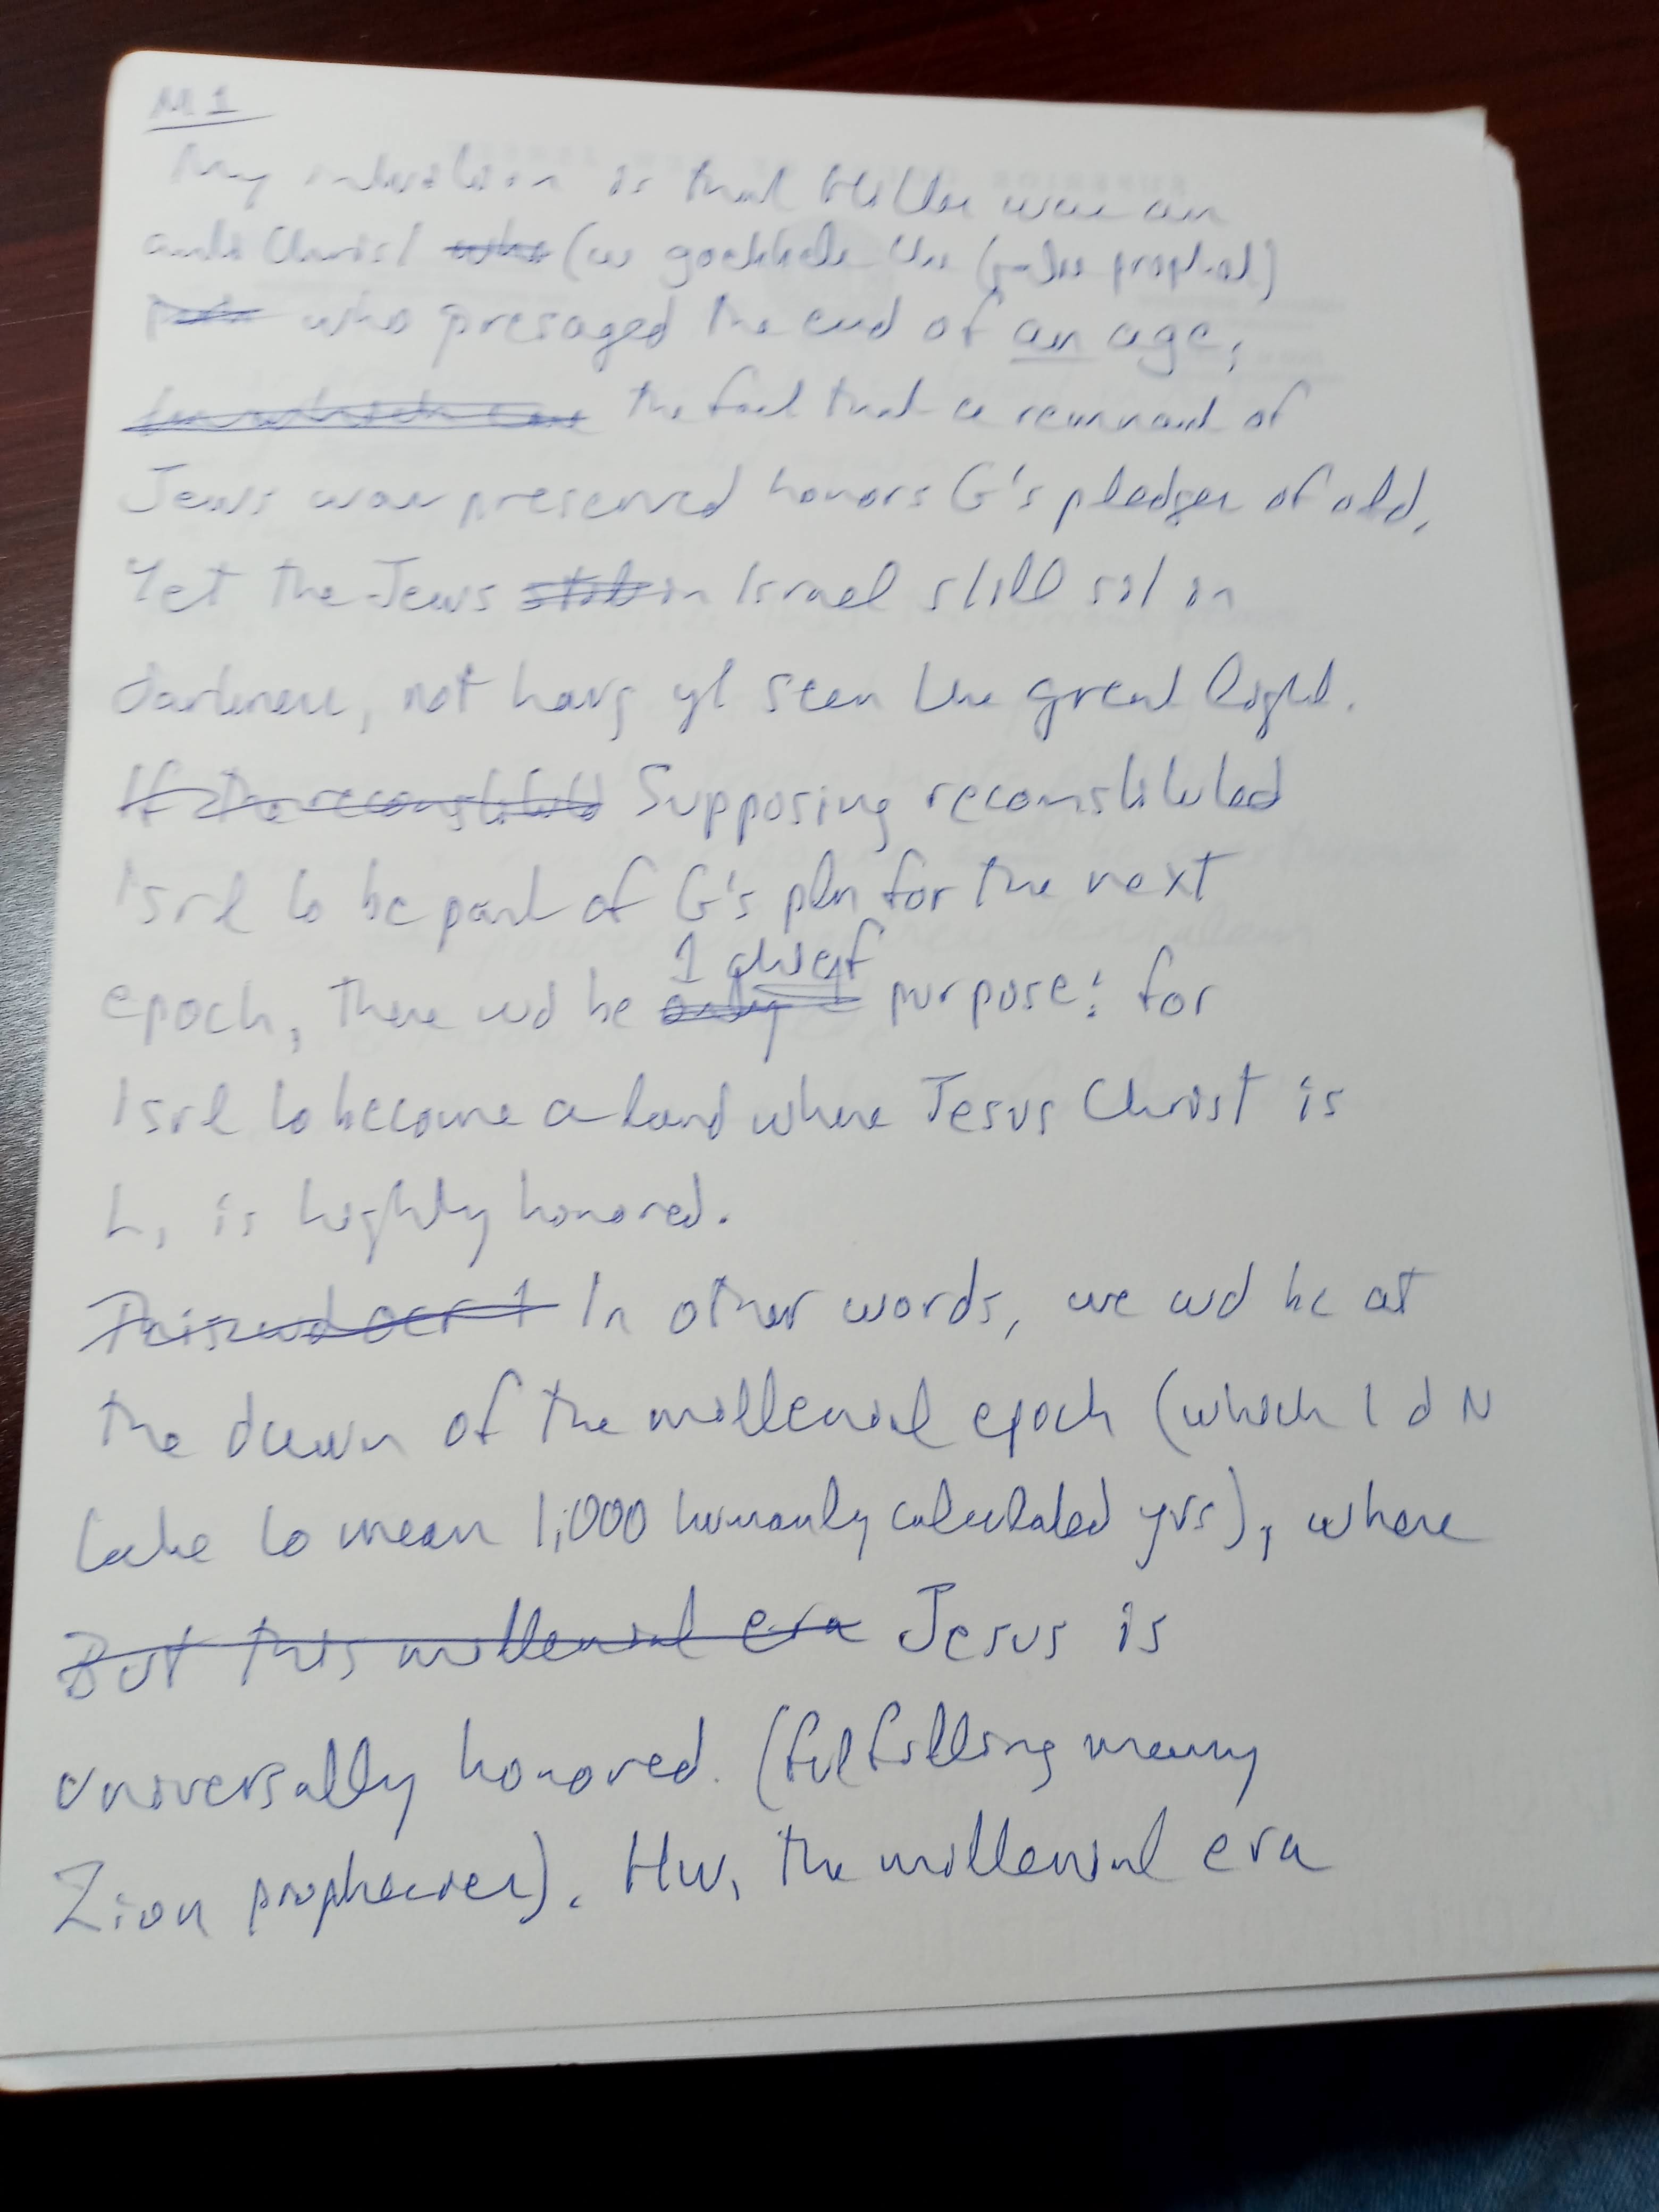 M1
My intuition is that Hitler was an
anti Christ who (w goebbels the false prophet)
who presaged the end of an age;
In which case the fact that a remnant of
Jews was preserved honors G's pledges of old.
Yet the Jews still in Israel still sit in
darkness, not havg yt seen the great light.
If the reconstituted Supposing reconstituted
Isrl to be part of G's pln for the next
1 chief
epoch, there wd be only purpose: for
Isrl to become a land where Jesus Christ is
L, is highly honored.
This wd be In other words, we wd be at
the dawn of the millenial epoch (which I d N
take to mean 1,000 humanly calculated yrs), where
But this millenial era Jesus is
universally honored. (fulfilling many
Zion prophecies). Hw, the millenial era